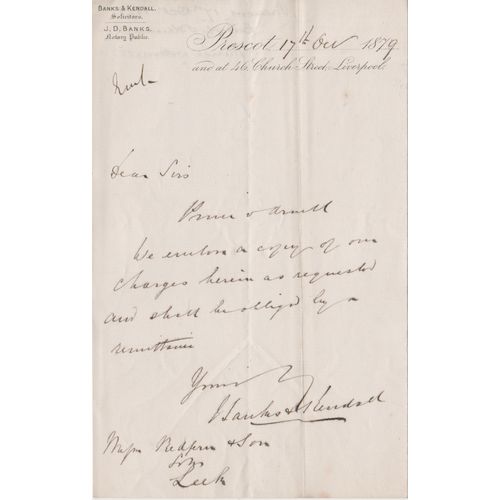 BANKS & KENDALL.
Solicitors.
J. D. BANKS,
Notary Public.
Prescot, 17th Dec 1879
and at 46, Church Street, Liverpool.
Dear Sirs
v
We enclose a copy of our
charges herein as requested
and shall be obliged by a
remittance
Yours
Banks & Kendall
Messrs Redfern & Son
Solrs
Leek